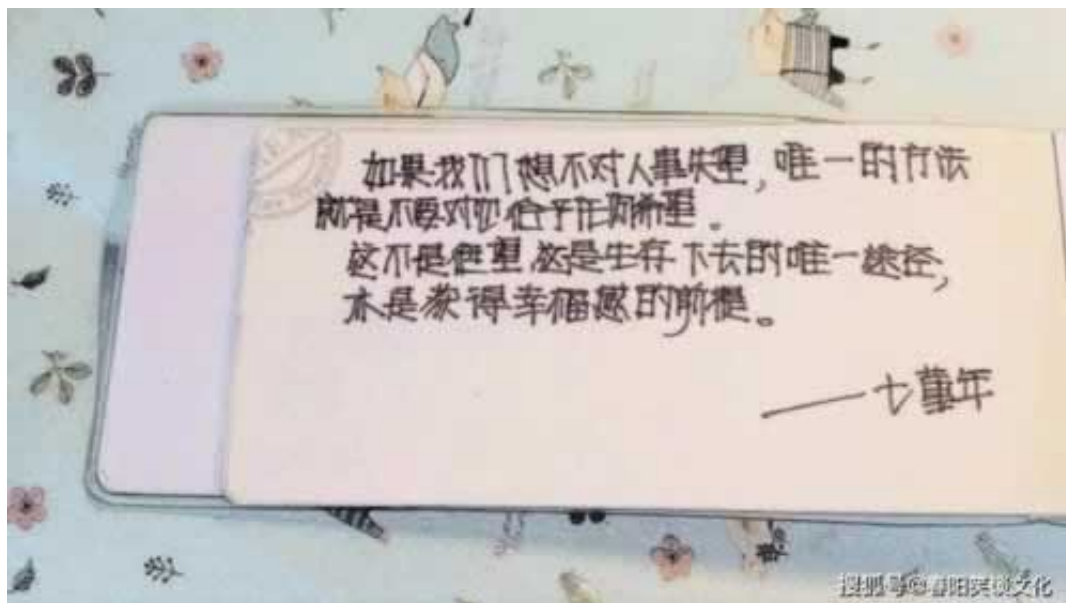 如果我们想不对人事失望,唯一的方法
就是不要对它给予任何希望。
这不是绝望,这是生存下去的唯一途径,
亦是获得幸福感的前提。
——七堇年
搜狐号@春阳笑谈文化